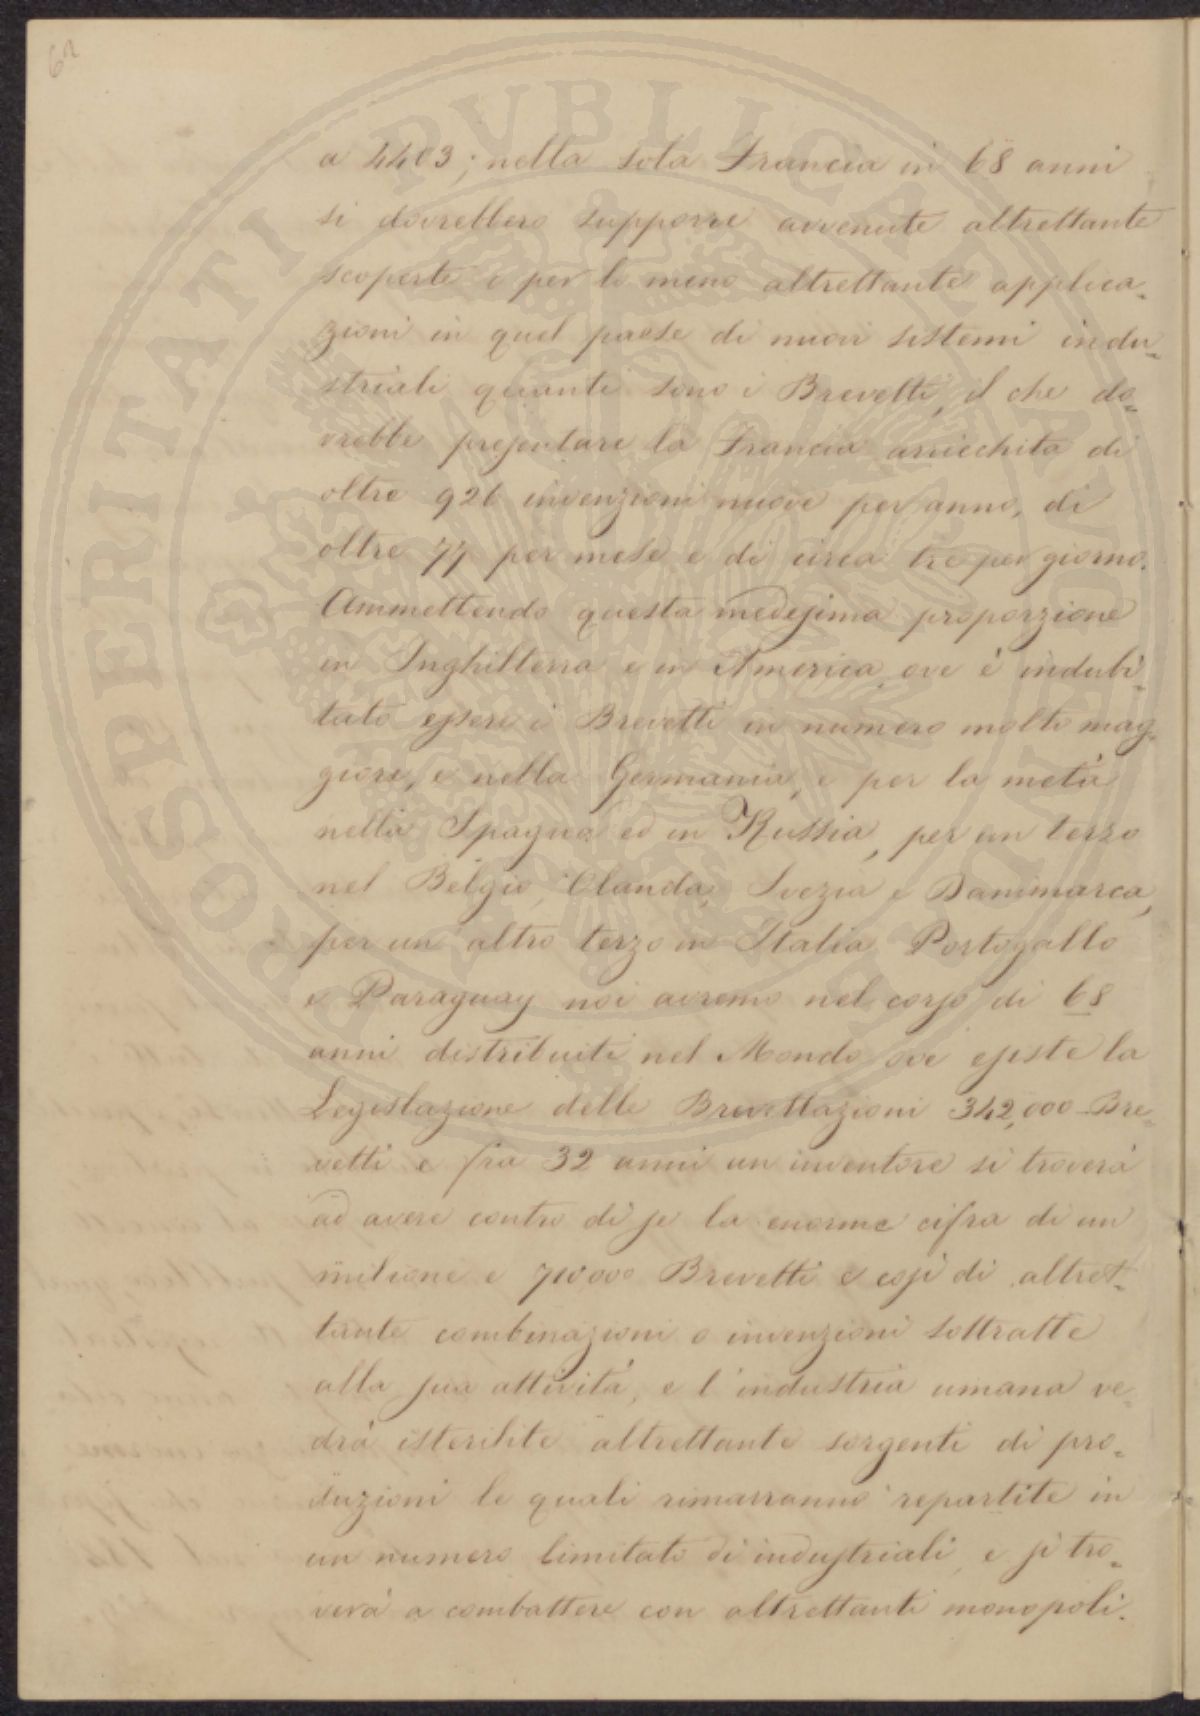 62
a 4403; nella sola Francia in 68 anni
si dovrebbero supporre avvenute altrettante
scoperte e per lo meno altrettante applica-
zioni in quel paese di nuovi sistemi indu-
striali quanti sono i Brevetti, il che do-
vrebbe presentare la Francia arricchita di
oltre 926 invenzioni nuove per anno, di
oltre 77 per mese e di circa tre per giorno.
Ammettendo questa medesima proporzione
in Inghilterra e in America, ove è indubi-
tato essere i Brevetti in numero molto mag-
giore, e nella Germania, e per la metà
nella Spagna ed in Russia, per un terzo
nel Belgio, Olanda, Svezia e Danimarca,
per un altro terzo in Italia Portogallo
e Paraguay noi avremo nel corso di 68
anni distribuiti nel Mondo ove esiste la
Legislazione delle Brevettazioni 342,000 Bre-
vetti e fra 32 anni un inventore si troverà
ad avere contro di se la enorme cifra di un
milione e 710000 Brevetti e così di altret-
tante combinazioni o invenzioni sottratte
alla sua attività, e l'industria umana ve-
drà isterilite altrettante sorgenti di pro-
duzioni le quali rimarranno repartite in
un numero limitato di industriali, e si tro-
verà a combattere con altrettanti monopoli.
PROSPERITATI PVBLICAE